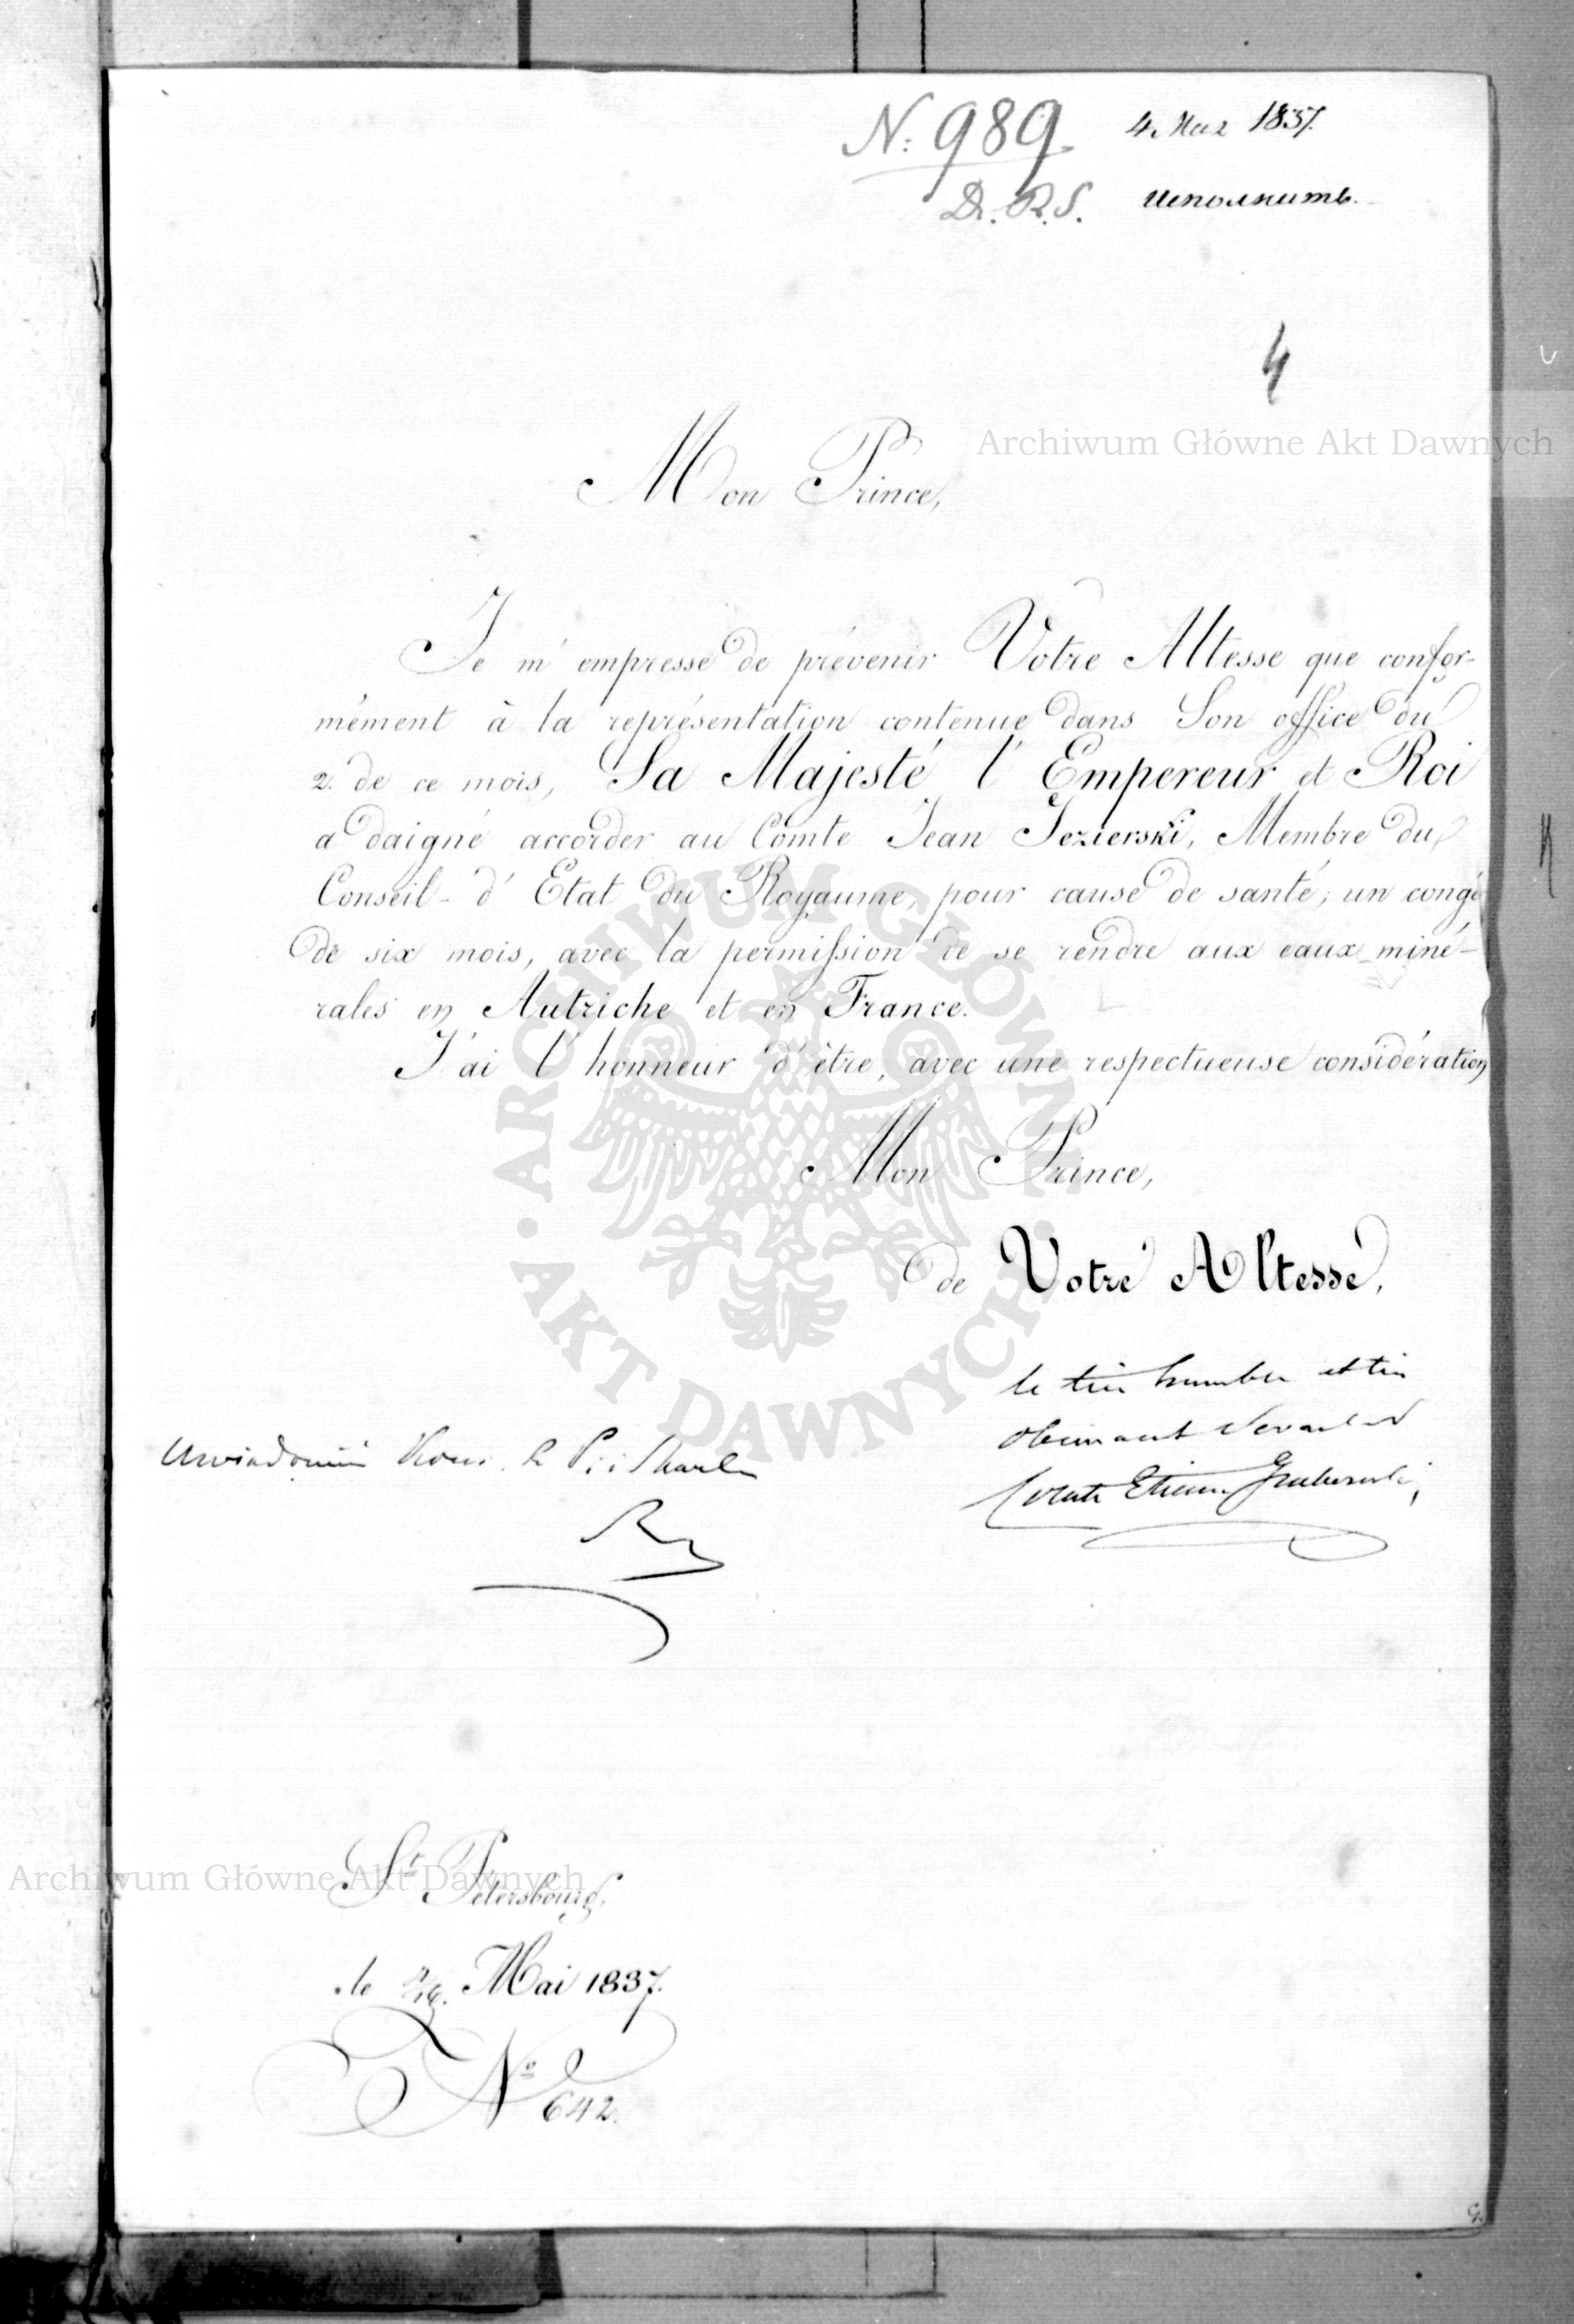 N: 989. 4 Мая 1837.
D. R. S. исполнить.
4
Archiwum Główne Akt Dawnych
Mon Prince,
Je m'empresse de prévenir Votre Altesse que confor-
mément à la représentation contenue dans Son office du
2. de ce mois, Sa Majesté l'Empereur et Roi
a daigné accorder au Comte Jean Jezierski, Membre du
Conseil-d'Etat du Royaume, pour cause de santé, un congé
de six mois, avec la permission de se rendre aux eaux miné-
rales en Autriche et en France.
J'ai l'honneur d'être, avec une respectueuse considération
Mon Prince,
de Votre Altesse,
le très humble et très
obéissant Serviteur
Comte Etienne Grabowski,
Uwiadomić Kom. R. P. i Skarbu
ARCHIWUM GŁÓWNE · AKT DAWNYCH ·
St. Pétersbourg,
Archiwum Główne Akt Dawnych
le Mai 1837.
No 642.